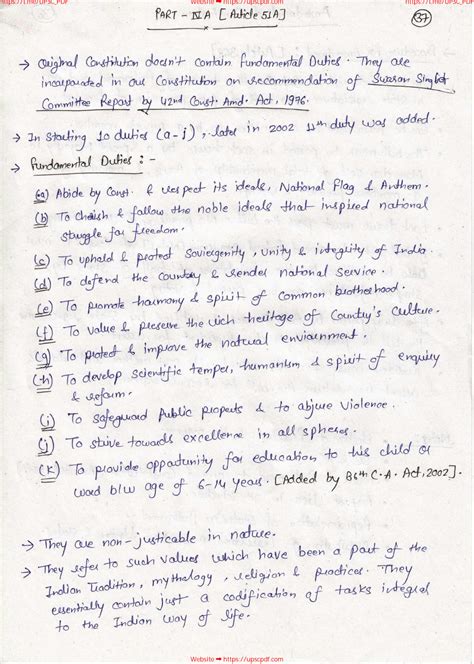 https://t.me/UPSC_PDF Website ➡ https://upscpdf.com https://t.me/UPSC_PDF
PART - IV A [Article 51A]
37
→ Original Constitution doesn't contain Fundamental Duties. They are
incorporated in our Constitution on recommendation of Swaran Singh
Committee Report by 42nd Const. Amd. Act, 1976.
→ In Starting 10 duties (a-j), later in 2002 11th duty was added.
→ Fundamental Duties :-
(a) Abide by Const. & respect its ideals, National Flag & Anthem.
(b) To cherish & follow the noble ideals that inspired national
struggle for freedom.
(c) To uphold & protect Sovereignity, unity & integrity of India.
(d) To defend the Country & render national service.
(e) To promote harmony & spirit of Common brotherhood.
(f) To value & preserve the rich heritage of Country's Culture.
(g) To protect & improve the natural environment.
(h) To develop scientific temper, humanism & spirit of enquiry
& reform.
(i) To safeguard Public property & to abjure Violence.
(j) To strive towards excellence in all spheres.
(k) To provide opportunity for education to his child or
ward b/w age of 6-14 years. [Added by 86th C.A. Act, 2002].
→ They are non-justicable in nature.
→ They refer to such values which have been a part of the
Indian Tradition, mythology, religion & practices. They
essentially contain just a codification of tasks integral
to the Indian way of life.
Website ➡ https://upscpdf.com